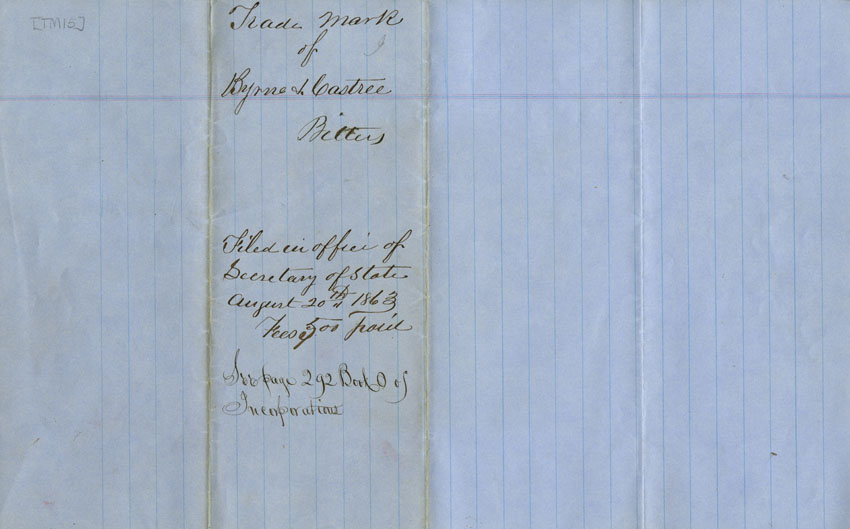 [TM15]
Trade Mark
of
Byrne & Castree
Bitters
Filed in office of
Secretary of State
August 20th 1863
Fees $5.00 paid
See page 292 Book of
Incorporations